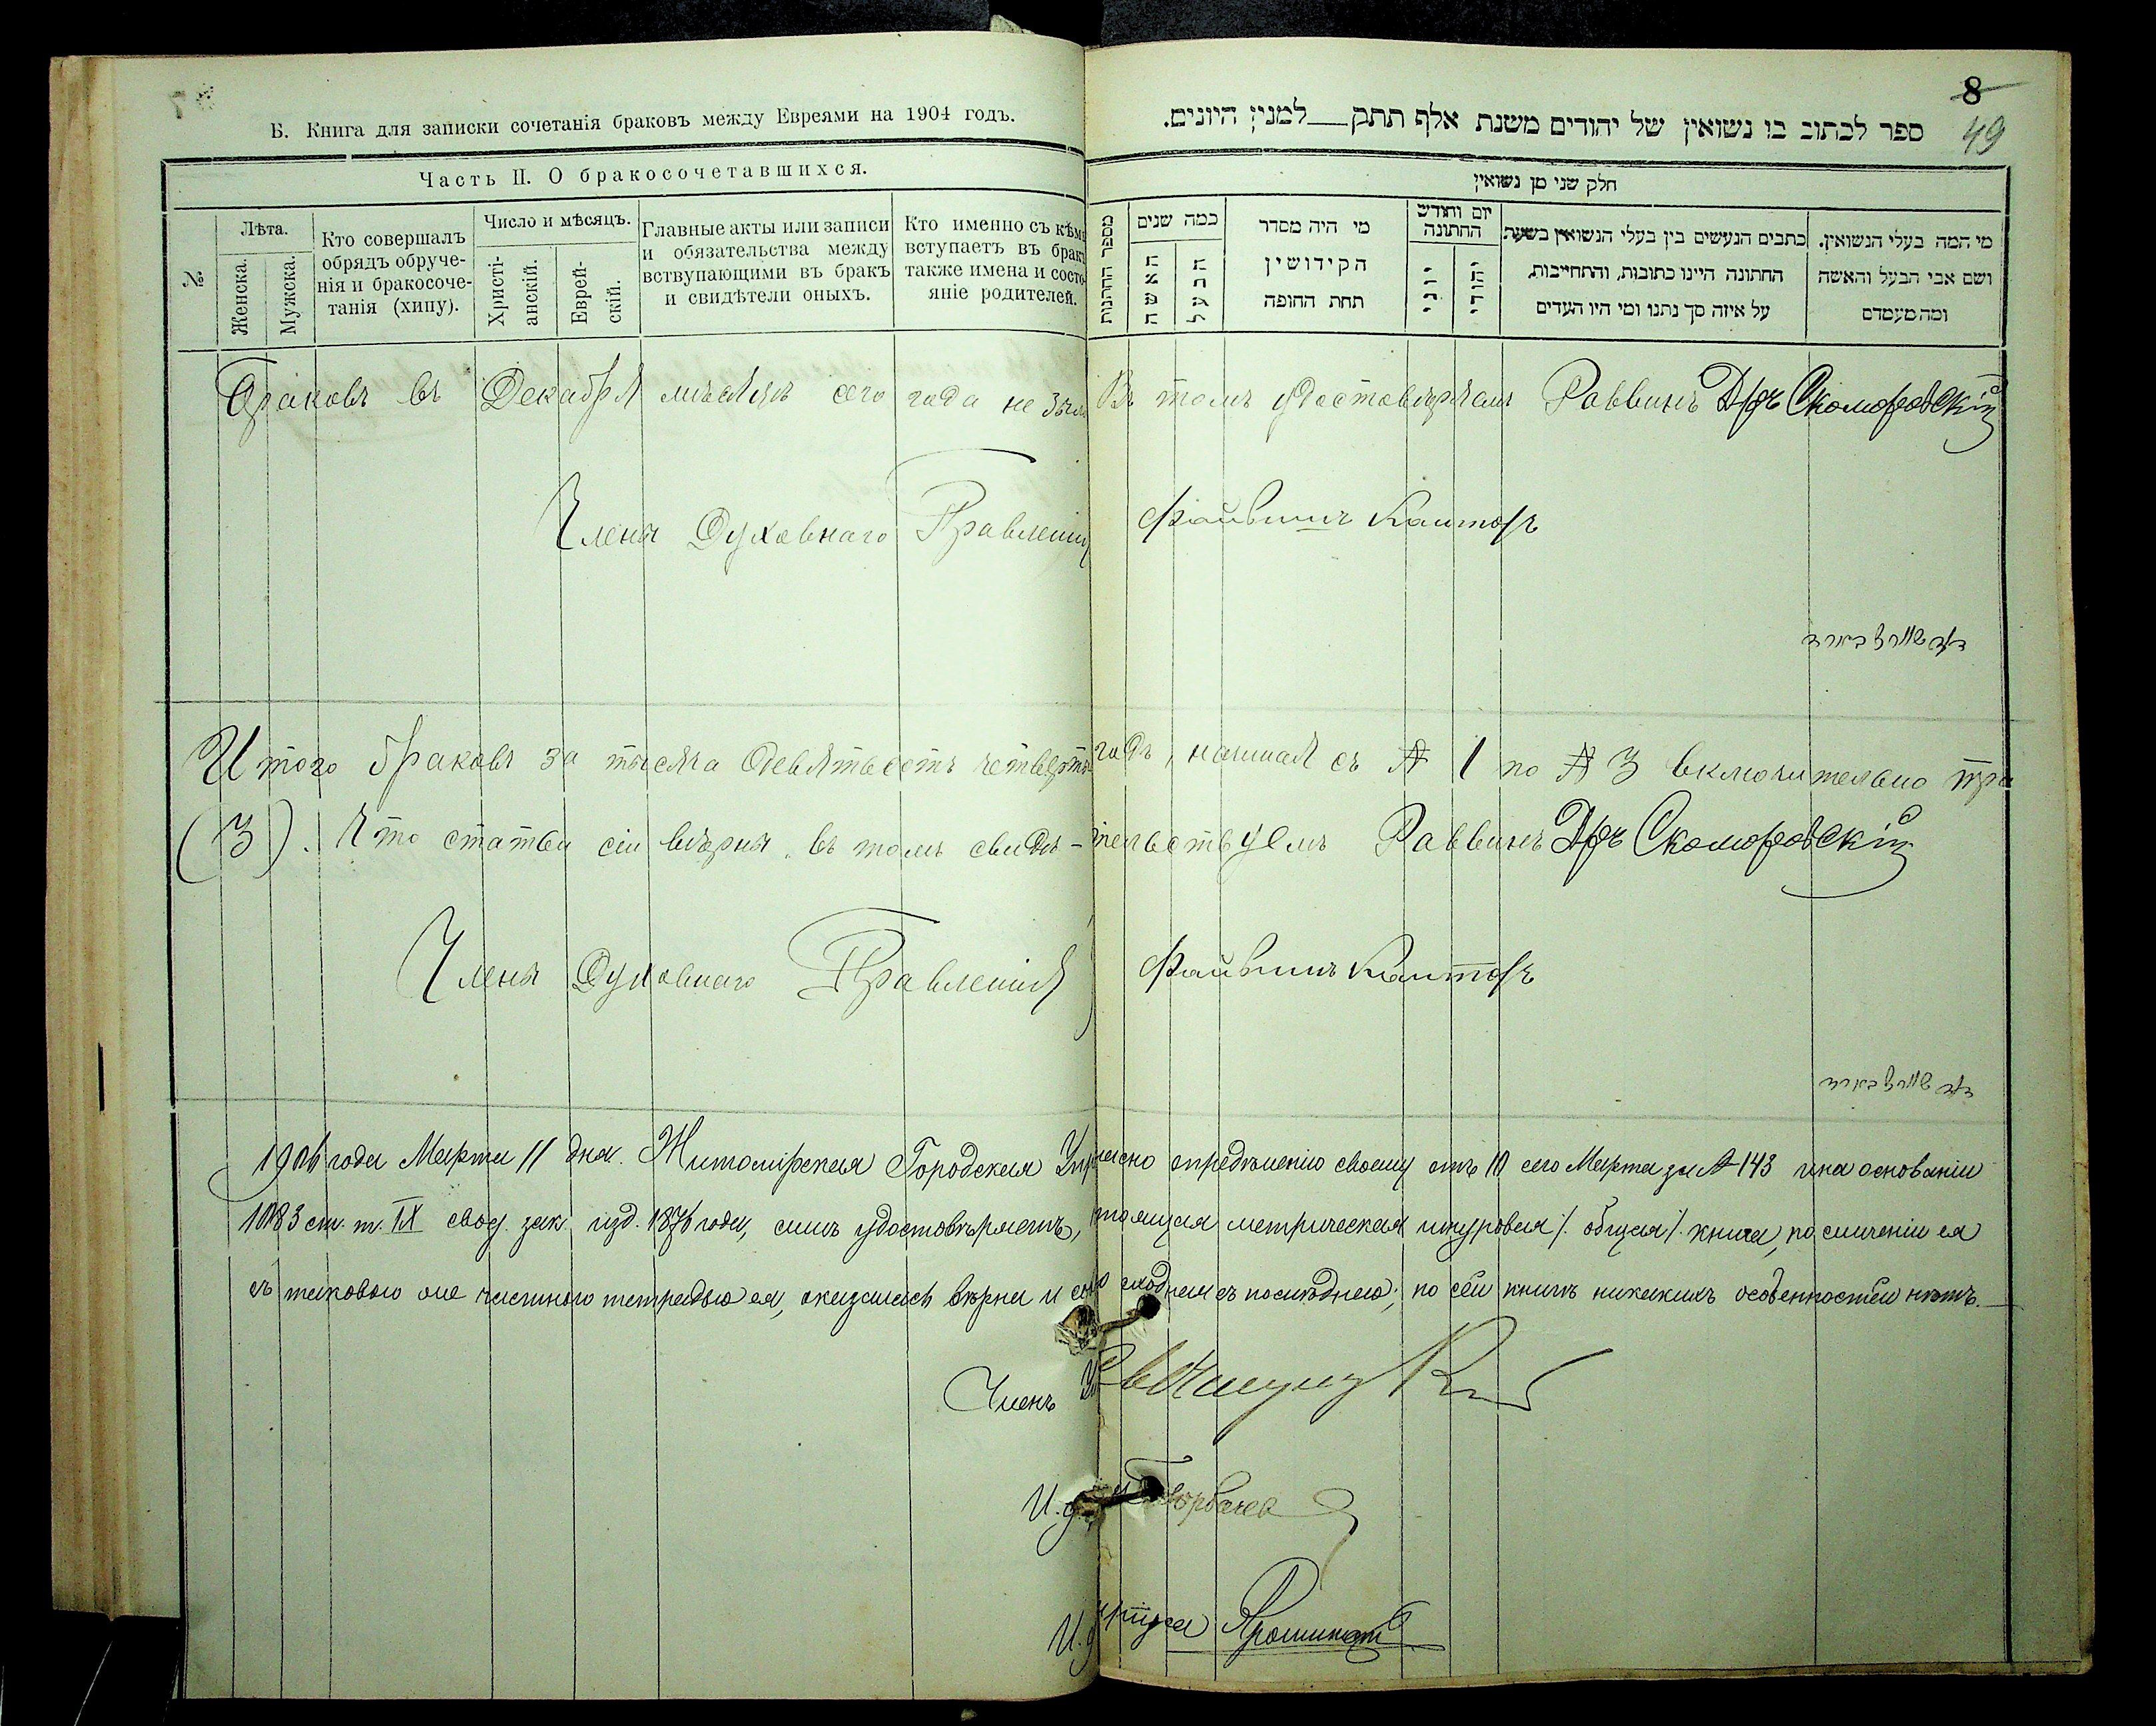 Б. Книга для записки сочетанія браковъ между Евреями на 1904 годъ.
Часть II. О бракосочетавшихся.
№
Лѣта.
Женска.
Мужска.
Кто совершалъ
обрядъ обруче-
нія и бракосоче-
танія (хипу).
Число и мѣсяцъ.
Христі-
анскій.
Еврей-
скій.
Главные акты или записи
и обязательства между
вствупающими въ бракъ
и свидѣтели оныхъ.
Кто именно съ кѣмъ
вступаетъ въ бракъ
также имена и состо-
яніе родителей.
8
49
ספר לכתוב בו נשואין של יהודים משנת אלף תתק___למנין היונים.
חלק שני מן נשואין
מספר החתונות
כמה שנים
האשה
הבעל
מי היה מסדר
הקידושין
תחת החופה
יום וחודש
החתונה
יוני
יהודי
כתבים הנעשים בין בעלי הנשואין בשעת
החתונה היינו כתובות, והתחייבות,
על איזה סך נתנו ומי היו העדים
מי המה בעלי הנשואין.
ושם אבי הבעל והאשה
ומה מעמדם
Браковъ въ Декабрѣ мѣсяцѣ сего года не было Въ томъ удостовѣряемъ Раввинъ Д-ръ Скоморовскій
Члены Духовнаго Правленія Файвишъ Канторъ
Итого браковъ за тысяча девятьсотъ четвертый годъ, начиная съ № 1 по № 3 включительно три
(3). Что статьи сіи вѣрны, въ томъ свидѣ-тельствуемъ Раввинъ Д-ръ Скоморовскій
Члены Духовнаго Правленія Файвишъ Канторъ
1906 года Марта 11 дня. Житомірская Городская Упр согласно опредѣленію своему отъ 10 сего Марта за № 143 и на основаніи
1083 ст. т. IX свод. зак. изд. 1876 года, симъ удостовѣряетъ, настоящая метрическая шнуровая /. общая /. книга, по сличеніи ея
съ таковою же частного тетрадью ея, оказалась вѣрна и сходна съ послѣднею; по сей книгѣ никакихъ особенностей нѣтъ.
Членъ
И. д. Горбачев
И. д.